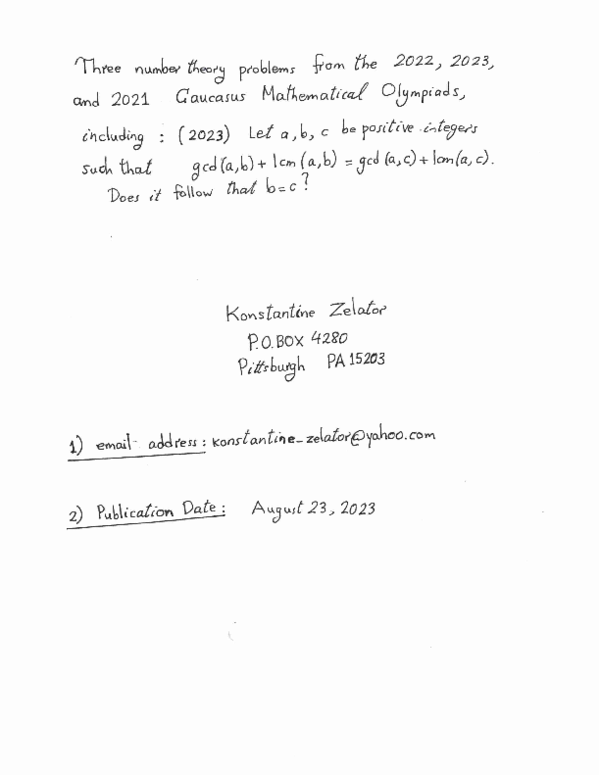 Three number theory problems from the 2022, 2023,
and 2021 Caucasus Mathematical Olympiads,
including : (2023) Let a, b, c be positive integers
such that gcd(a,b) + lcm(a,b) = gcd(a,c) + lcm(a,c).
Does it follow that b=c?
Konstantine Zelator
P.O. BOX 4280
Pittsburgh PA 15203
1) email address: konstantine_zelator@yahoo.com
2) Publication Date: August 23, 2023